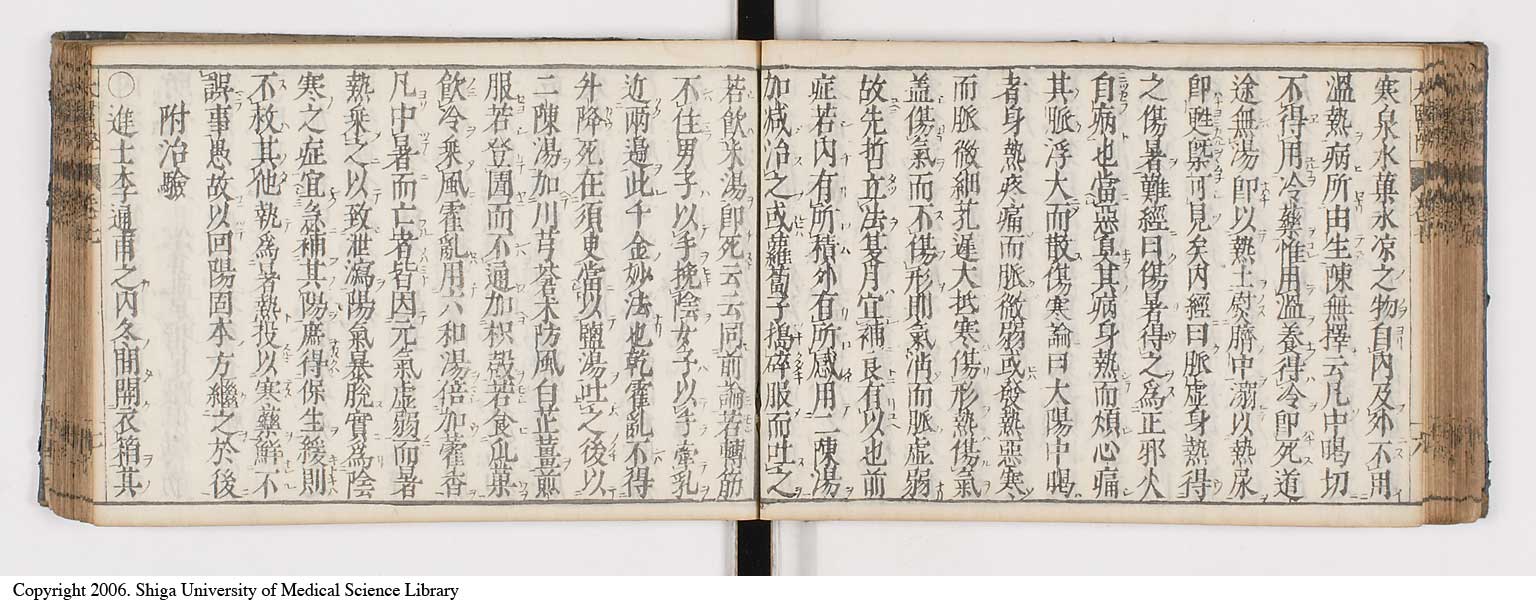 寒泉水菓氷凉之物自内及外不用
溫熱病所由生陳無擇云凡中暍切
不得用冷藥惟用溫養得冷即死道
途無湯即以熱土熨臍中溺以熱尿
即甦槩可見矣内經曰脈虛身熱得
之傷暑難經曰傷暑得之爲正邪火
自病也當惡臭其病身熱而煩心痛
其脈浮大而散傷寒論曰大陽中暍
者身熱疼痛而脈微弱或發熱惡寒
而脈微細芤遲大抵寒傷形熱傷氣
盖傷氣而不傷形則氣消而脈虛弱
故先哲立法夏月宜補良有以也前
症若内有所積外有所感用二陳湯
加减治之或蘿蔔子搗碎服而吐之
若飲米湯即死云云同前論若轉筋
不住男子以手挽陰女子以手牽乳
近兩邉此千金妙法也乾霍亂不得
升降死在須臾當以鹽湯吐之後以
二陳湯加川芎蒼朮防風白芷薑煎
服若登圊而不通加枳殼若食瓜菓
飲冷乗風霍亂用六和湯倍加藿香
凡中暑而亡者皆因元氣虛弱而暑
熱乗之以致泄瀉陽氣暴脫實爲陰
寒之症宜急補其陽庶得保生緩則
不救其他執爲暑熱投以寒藥鮮不
誤事愚故以回陽固本方繼之於後
附治驗
○進士李通甫之内冬間開衣箱其
Copyright 2006. Shiga University of Medical Science Library